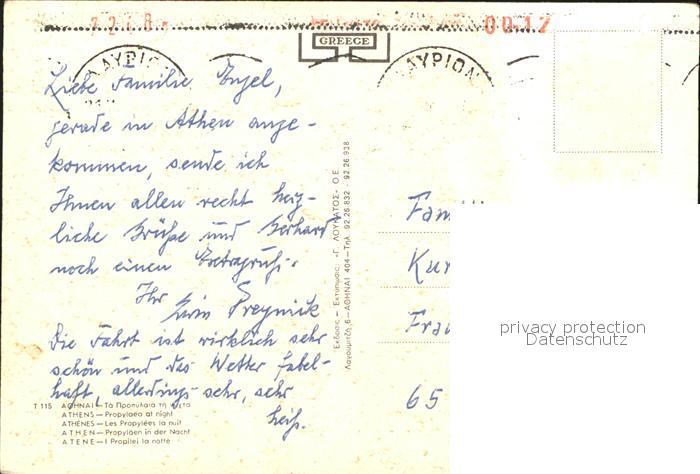 00.17
GREECE
ΛΑΥΡΙΟΝ
Liebe Familie Engel,
gerade in Athen ange-
kommen, sende ich
Ihnen allen recht herz-
liche Grüße und Gerhard
noch einen Extragruß.
Ihr
Die Fahrt ist wirklich sehr
schön und das Wetter fabel-
haft, allerdings sehr, sehr
heiß.
T 115 ΑΘΗΝΑΙ—Τα Προπύλαια τη νύχτα
ATHENS—Propylaea at night
ATHÈNES—Les Propylées la nuit
ATHEN—Propyläen in der Nacht
ATENE—I Propilei la notte
Εκδοσις — Εκτύπωσις: «Γ. ΛΟΥΚΑΤΟΣ» Ο.Ε.
6—ΑΘΗΝΑΙ 404—Τηλ. 92.26.832 92.26.938
Fam
Kur
Fra
65
privacy protection
Datenschutz